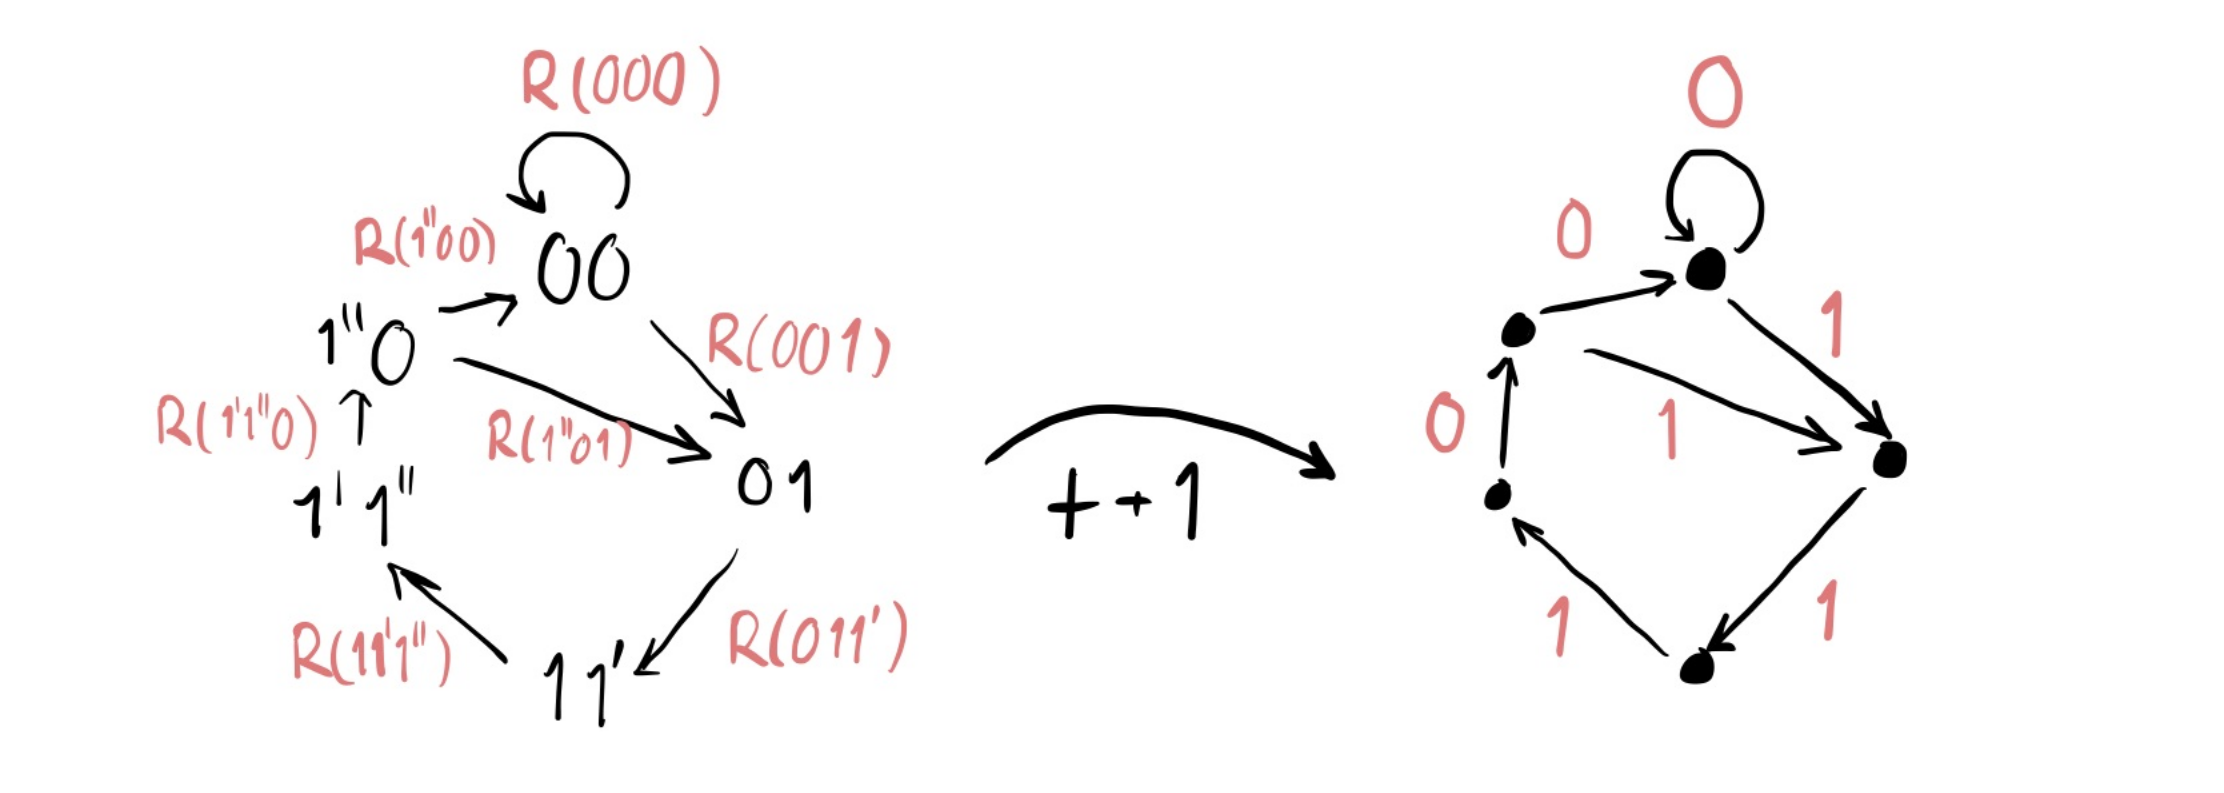 R(000)
R(1''00)
00
1''0
R(001)
R(1'1''0)
R(1''01)
01
1'1''
R(11'1'')
11'
R(011')
t+1
0
0
1
0
1
1
1